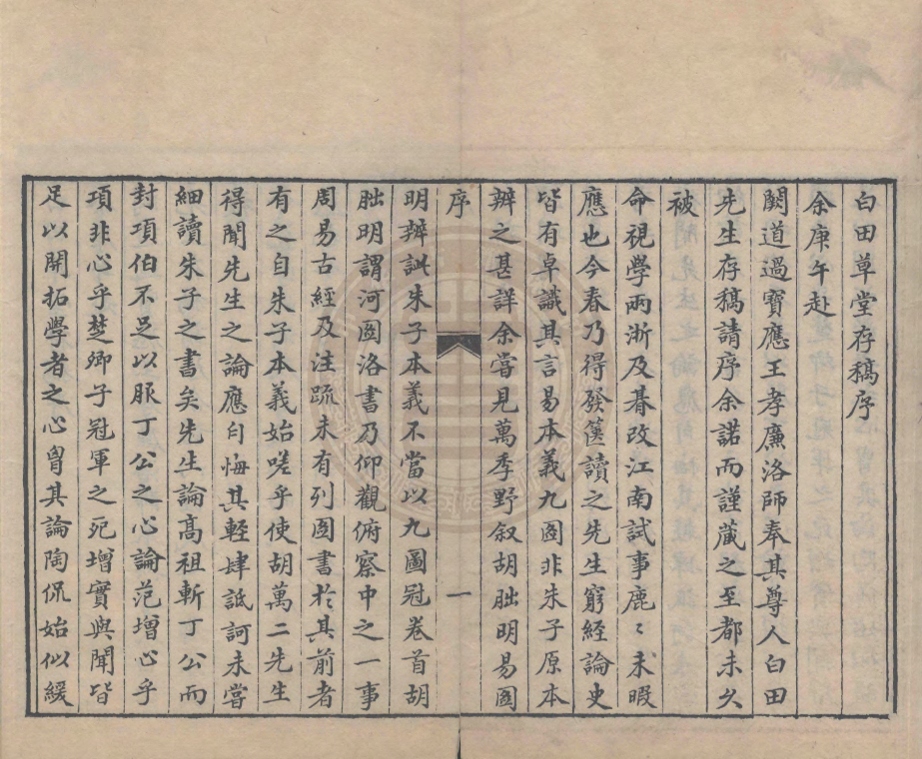 白田草堂存稿序
余庚午赴
闕道過寶應王孝廉洛師奉其尊人白田
先生存稿請序余諾而謹藏之至都未久
被
命視學兩浙及朞改江南試事鹿〻未暇
應也今春乃得發篋讀之先生窮經論史
皆有卓識其言易本義九圖非朱子原本
辨之甚詳余嘗見萬季野叙胡朏明易圖
序
一
明辨訿朱子本義不當以九圖冠卷首胡
朏明謂河圖洛書乃仰觀俯察中之一事
周易古經及注疏未有列圖書於其前者
有之自朱子本義始嗟乎使胡萬二先生
得聞先生之論應自悔其輕肆詆訶未嘗
細讀朱子之書矣先生論高祖斬丁公而
封項伯不足以服丁公之心論范增心乎
項非心乎楚卿子冠軍之死增實與聞皆
足以開拓學者之心胷其論陶侃始似緩